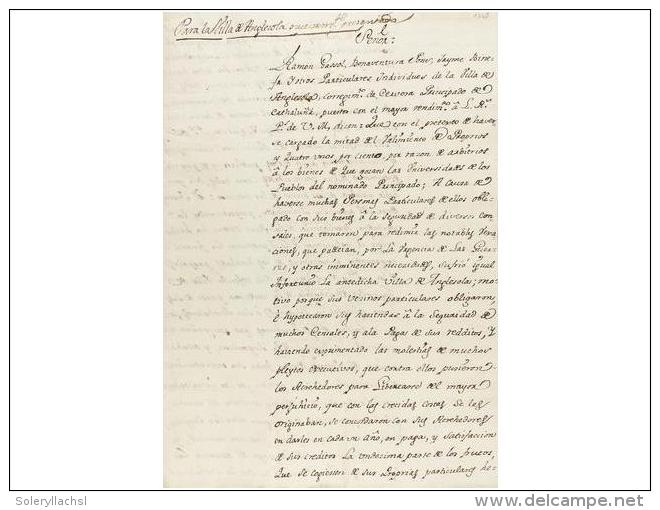 Para la Villa de Anglesola
Señor:
Ramon Gassol, Bonaventura Pont, Jayme Bire-
fa y otros Particulares Individuos de la Villa de
Anglesola, corregim.to de Cervera Principado de
Cathaluña, puestos con el mayor rendim.to â L. R.s
P.s de V. M. dicen: Que con el pretexto de haver-
se cargado la mitad del Valimiento de Proprios
y quatro unos por ciento por razon de arbitrios
â los bienes de que gozan las Universidades de los
Pueblos del nominado Principado; A causa de
haverse muchas Personas Particulares de ellos obli-
gado con sus bienes â la seguridad de diversos cen-
sales, que tomaron para redimir las notables vexa-
ciones, que padecian, por la Urgencia de las Guer-
ras, y otras imminentes necesidades, sufrió igual
Infortunio la antedicha Villa de Anglesola; mo-
tivo porque sus vezinos particulares obligaron,
è hypotecaron sus haziendas â la Seguridad de
muchos Censales, y a la Pagas de sus redditos, Y
haviendo experimentado las molestias de muchos
pleytos executivos, que contra ellos pusieron
los Acrehedores para Librarse del mayor
perjuhicio, que con las crecidas costas se les
originaban, se concordaron con sus Acrehedores
en darles en cada un Año, en paga, y satisfaccion
de sus creditos la ondezima parte de los frutos,
que se cogiessen de sus proprias particulares he-
Soleryllachsl
delcampe.net